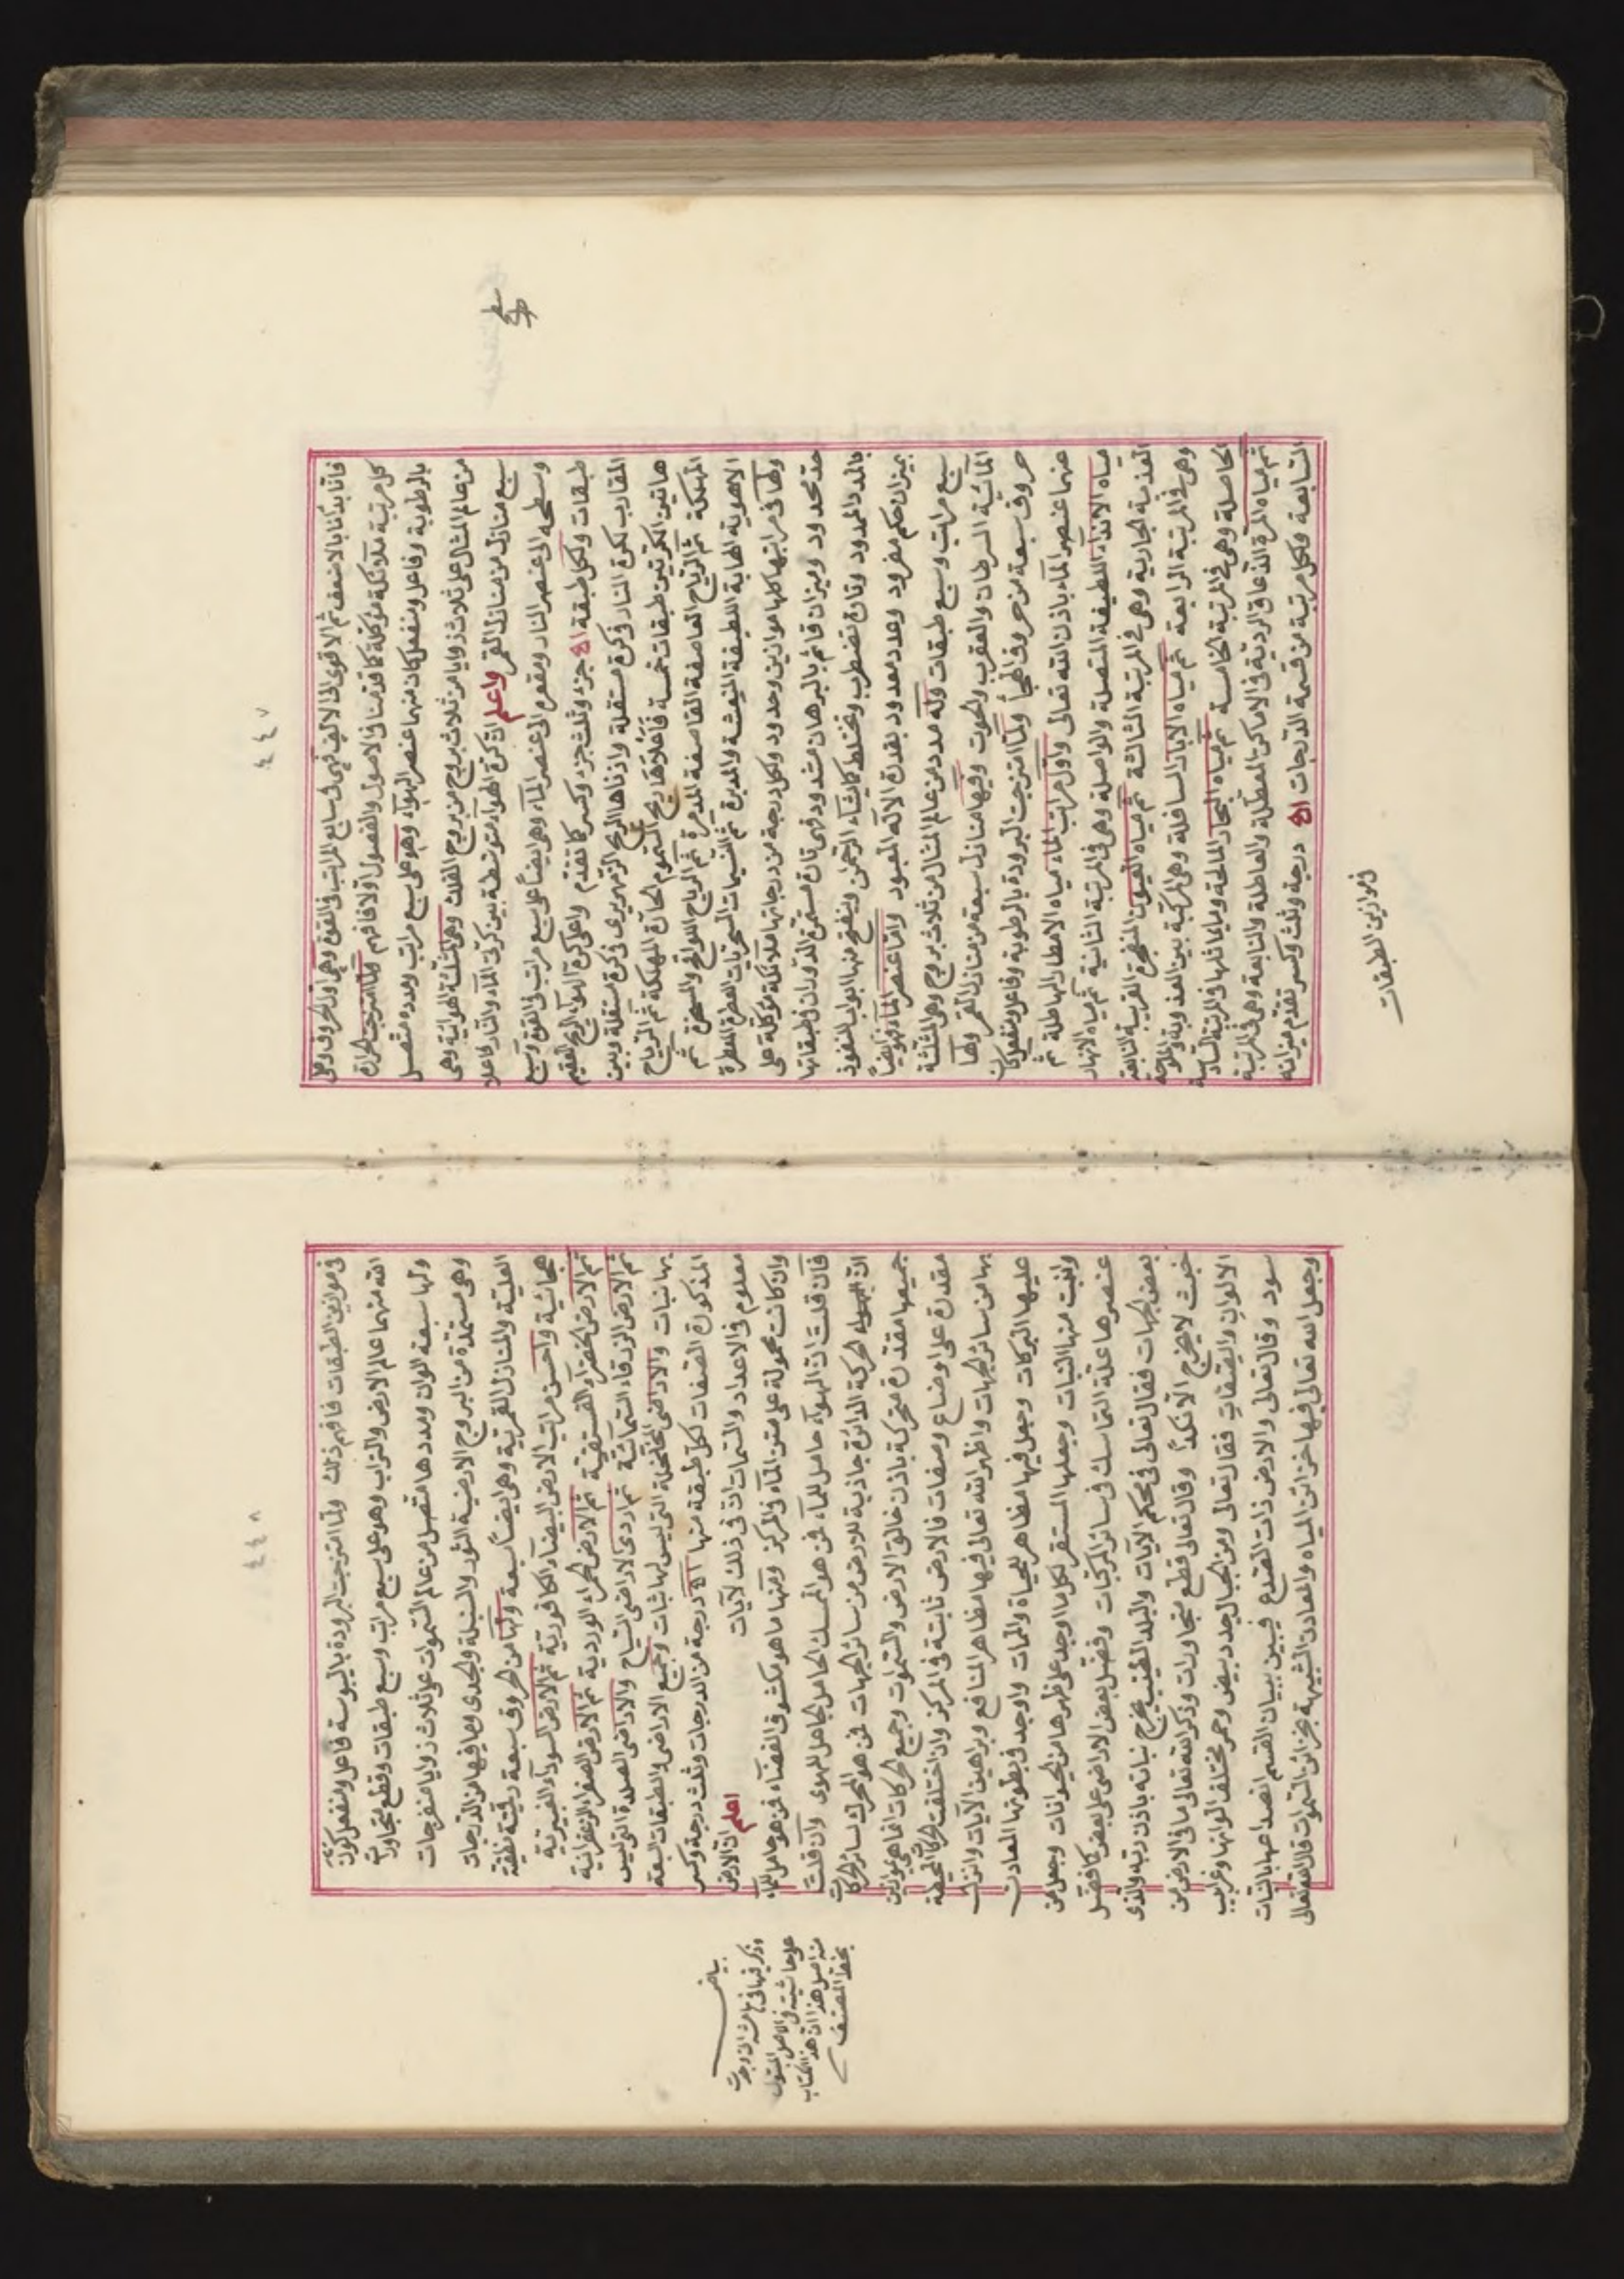 ٤٤٧
فانا بدأنا بالاضعف ثم الاقوى الى الالف فهى فى سابع المراتب فى القوة وهى اول الحروف وعلى
كل مرتبة ملائكة موكلة كما قدمنا فى الاصول والفصول اولا فافهم ولما امتزجت الحرارة
بالرطوبة وفاعل ومنفعل كان منهما عنصر الهوآء وهو على سبع مراتب ومدده متصل
من عالم المثال على ثلاث زوايا من ثلاث بروج من بروج الفلك وهى المثلثة الهوائية وهى
سبع منازل من منازل القمر واعلم ان كرة الهوآء متوسطة بين كرتى المآء والنار فاعلا
وسطحه الى عنصر النار ومقعره الى عنصر المآء وهى ايضاً على سبع مراتب فى القوة وسبع
طبقات ولكل طبقة جزء وثلث جزء وكسر كما تقدم واعلى كرة الهوآء الريح العقيم
المقارب لكرة النار وكرة مستقلة وادناها الريح الزمهريرى فى كرة مستقلة وبين
هاتين الكرتين طبقات خمسة فأعلاها ريح السموم الحارة المهلكة ثم الرياح
المهلكة ثم الرياح العاصفة القاصفة المدمرة ثم الرياح اللواقح والمسخرة ثم
الاهوية الهابة اللطيفة المنعشة والمدبرة ثم النسيمات السحريات العطرة المعطرة
ولها فى مراتبها كلها موازين وحدود ولكل درجة من درجاتها ملائكة موكلة على
حد محدود وميزان قائم بالبرهان مشدود فهى تارة مستمرة الدوران فى طبقاتها
بالمدد الممدود وتارة تضطرب وتختلط كما يشاء الرحمن وينفتح منها ابواب النفوذ
بميزان حكم مفرود وعدد معدود بقدرة الاله المعبود واما عنصر المآء فهو ايضاً
سبع مراتب وسبع طبقات وله مدد من عالم المثال من ثلاث بروج وهى المثلثة
المائية السرطان والعقرب والحوت وفيها منازل سبعة من منازل القمر ولها
حروف سبعة من حروف الهجآ ولما امتزجت البرودة بالرطوبة وفاعل ومنفعل كان
عنهما عنصر المآء باذن الله تعالى واول مراتب الماء مياه الامطار الهاطلة ثم
مياه الاندآء اللطيفة المتصلة والواصلة وهى فى المرتبة الثانية ثم مياه الانهار
العذبة الجارية وهى فى المرتبة الثالثة ثم مياه العيون المنفجرة القريبة النابعة
وهى فى المرتبة الرابعة ثم مياه الابار السافلة وهى المركبة بين العذوبة والملوحة
الحاصلة وهى فى المرتبة الخامسة ثم مياه البحار المالحة وما يماثلها فى المرتبة السادسة
ثم مياه المرة الذعاق الردية فى الاماكن المعطلة والعاطلة والنابعة وهى فى المرتبة
السابعة ولكل مرتبة من قسمة الدرجات درجة وثلث وكسر تقدم ميزانه
فى موازين الطبقات
٤٤٨
فى موازين الطبقات فافهم ذلك ولما امتزجت البرودة باليبوسة فاعل ومنفعل كون
الله منهما عالم الارض والتراب وهو على سبع مراتب وسبع طبقات وقطع متجاورات
ولها سبعة الوان ومددها متصل من عالم السموات على ثلاث زوايا منفرجات
وهى مستمدة من البروج الارضية الثور والسنبلة والجدى وما فيها من الدرجات
العلية والمنازل القمرية وهى ايضاً سبعة ولها من الحروف سبعة
هجائية واحسن مراتب الارض البيضاء الكافورية ثم الارض السودآء العنبرية
ثم الارض الخضرآء الفستقية ثم الارض الحمراء الوردية ثم الارض الصفراء الزعفرانية
ثم الارض الزرقاء السمائية ثم اردى الاراضى السباخ والاراضى الصلدة التى ليس
بها نبات والاراضى المختلخلة التى ليس لها ثبات وجميع الاراضى والطبقات السبعة
المذكورة الصفات لكل طبقة منها درجة من الدرجات وثلث درجة وكسر
معلوم فى الاعداد والسمات ان فى ذلك لآيات اعلم ان الارض
وان كانت محمولة على متن المآء فى المركز ومنها ما هو مكشوف الفضآء فمن هو حامل للمآء
فان قلت ان الهوآء حامل للمآء فمن هو الممسك الحامل الجاعل للهوى وان قلت
ان الهوآء الحركة الدائرة جاذبة للارض من سائر الجهات فمن هو المحرك لسائر الحركات
جميعها مقدرة متحركة باذن خالق الارض والسموات وجميع الحركات انما هى موازين
مقدرة على اوضاع وصفات فالارض ثابتة فى المركز وان اختلفت الحركات المحيطة
بها من سائر الجهات واظهر الله تعالى فيها مظاهر المنافع وبراهين الآيات وانزل
عليها البركات وجعل فيها مظاهر للحياة والممات واوجد فى بطونها المعادن
وانبت منها النبات وجعلها المستقر لكل ما اوجد على ظهرها من الحيوانات وجعل من
عنصرها علة التماسك فى سائر المركبات وفضل بعض الاراضى على بعض كما فضل
بعض الجهات فقال تعالى فى محكم الآيات والبلد الطيب يخرج نباته باذن ربه والذى
خبث لا يخرج الا نكدا وقال تعالى قطع متجاورات وذكر الله تعالى ما فى الارض من
الالوان والصفات فقال تعالى ومن الجبال جدد بيض وحمر مختلف الوانها وغرابيب
سود وقال تعالى والارض ذات الصدع فيبين ببيان القسم انصداعها بالنبات
وجعل الله تعالى فيها خزائن المياه والمعادن الشبيهة بخزائن السموات قال الله تعالى
بياض
وذكر فيها فى
على حاشيته فى الاصل المنقول
منه اصل هذا ان هذا الكتاب
بخط المصنف